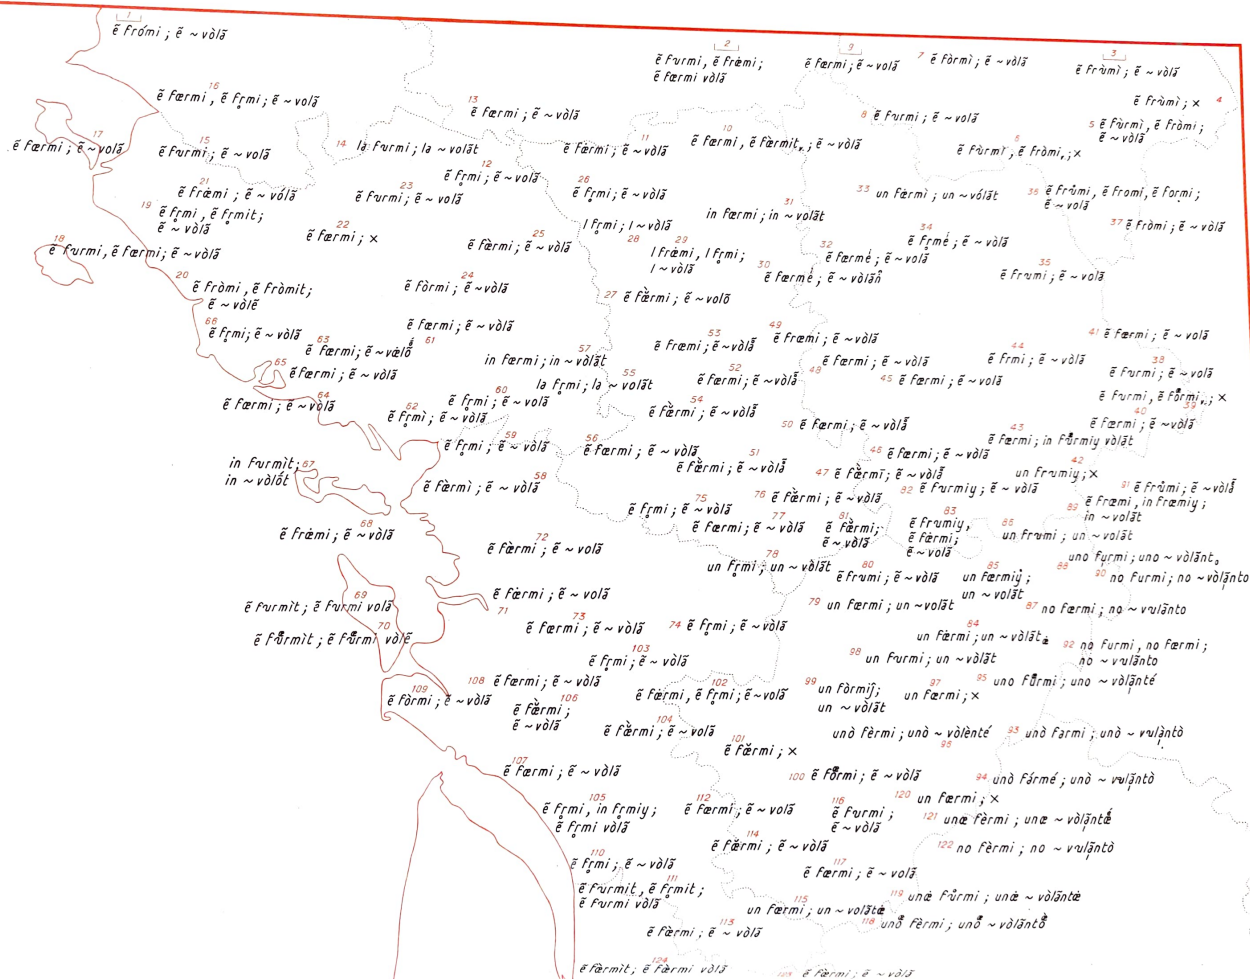 1
ẽ frómi ; ẽ ~ vòlã
2
ẽ furmi , ẽ frėmi ;
ẽ fœrmi vòlã
9
ẽ fœrmi ; ẽ ~ volã
7 ẽ fòrmi ; ẽ ~ vòlã
3
ẽ frùmi ; ẽ ~ vòlã
ẽ frùmi ; × 4
16
ẽ fœrmi , ẽ fr̥mi ; ẽ ~ volã
13
ẽ fœrmi ; ẽ ~ vòlã
8 ẽ furmi ; ẽ ~ volã
5 ẽ fùrmi , ẽ fròmi ;
ẽ ~ vòlã
17
ẽ fœrmi ; ẽ ~ volã
15
ẽ furmi ; ẽ ~ volã
14 la furmi ; la ~ volãt
11
ẽ fœ̀rmi ; ẽ ~ volã
10
ẽ fœrmi , ẽ fœ̀rmit ; ẽ ~ vòlã
6
ẽ furmi , ẽ fròmi ; ×
12
ẽ fr̥mi ; ẽ ~ volã
21
ẽ frėmi ; ẽ ~ vólã
23
ẽ furmi ; ẽ ~ volã
26
ẽ fr̥mi ; ẽ ~ vòlã
33 un fèrmi ; un ~ vólãt
36 ẽ frůmi , ẽ fromi , ẽ formi ;
ẽ ~ volã
19
ẽ fr̥mi , ẽ fr̥mit ;
ẽ ~ vòlã
31
in fœrmi ; in ~ volãt
37 ẽ fròmi ; ẽ ~ vòlã
22
ẽ fœrmi ; ×
25
ẽ fèrmi ; ẽ ~ vòlã
l fr̥mi ; l ~ vòlã
28
34
ẽ fr̥mė ; ẽ ~ vòlã
18
ẽ furmi , ẽ fœrmi ; ẽ ~ vòlã
29
l frėmi , l fr̥mi ;
l ~ vòlã
32
ẽ fœrmė ; ẽ ~ volã
30
ẽ fœrmė ; ẽ ~ vòlãⁿ
35
ẽ frumi ; ẽ ~ volã
20
ẽ fròmi , ẽ fròmit ;
ẽ ~ vòlẽ
24
ẽ fòrmi ; ẽ ~ vòlã
27 ẽ fœ̀rmi ; ẽ ~ volõ
66
ẽ fr̥mi ; ẽ ~ vòlã
ẽ fœrmi ; ẽ ~ vòlã
61
63
ẽ fœrmi ; ẽ ~ vėlõ
53
ẽ frœmi ; ẽ ~ vòlã
49
ẽ frœmi ; ẽ ~ vòlã
41 ẽ fœrmi ; ẽ ~ volã
65
ẽ fœrmi ; ẽ ~ vòlã
57
in fœrmi ; in ~ vòlãt
ẽ fœrmi ; ẽ ~ vòlã
48
44
ẽ frmi ; ẽ ~ vòlã
38
ẽ furmi ; ẽ ~ volã
55
la fr̥mi ; la ~ volãt
52
ẽ fœrmi ; ẽ ~ vòlã
45 ẽ fœrmi ; ẽ ~ vòlã
64
ẽ fœrmi ; ẽ ~ vòlã
60
ẽ fr̥mi ; ẽ ~ vòlã
62
ẽ fr̥mi ; ẽ ~ vòlã
54
ẽ fœ̀rmi ; ẽ ~ vòlã
39
40
ẽ fœrmi ; ẽ ~ vòlã
59
ẽ fr̥mi ; ẽ ~ vòlã
56
ẽ fœrmi ; ẽ ~ vòlã
50 ẽ fœrmi ; ẽ ~ vòlã
43
ẽ fœrmi ; in fůrmiy vòlãt
67
in furmit ;
in ~ vòlót
58
ẽ fœ̀rmi ; ẽ ~ vòlã
51
ẽ fœ̀rmi ; ẽ ~ vòlã
46
ẽ fœrmi ; ẽ ~ vòlã
47 ẽ fœ̀rmi ; ẽ ~ vòlã
42
un frumiy ; ×
82 ẽ furmiy ; ẽ ~ vòlã
91 ẽ frůmi ; ẽ ~ vòlã
75
ẽ fr̥mi ; ẽ ~ vòlã
76 ẽ fœ̀rmi ; ẽ ~ vòlã
89
ẽ frœmi , in frœmiy ;
in ~ volãt
68
ẽ frėmi ; ẽ ~ vòlã
77
ẽ fœrmi ; ẽ ~ vòlã
81
ẽ fœ̀rmi ;
ẽ ~ vòlã
83
ẽ frumiy ,
ẽ fèrmi ;
ẽ ~ volã
86
un frumi ; un ~ volãt
72
ẽ fœ̀rmi ; ẽ ~ volã
78
un fr̥mi ; un ~ vòlãt
80
ẽ frumi ; ẽ ~ vòlã
85
un fœrmiy ;
un ~ volãt
88
uno furmi ; uno ~ vòlãnt
90 no furmi ; no ~ vòlãnto
69
ẽ furmit ; ẽ furmi volã
ẽ fœ̀rmi ; ẽ ~ volã
71
79 un fœrmi ; un ~ volãt
87 no fœrmi ; no ~ vulãnto
70
ẽ fůrmit ; ẽ fůrmi volẽ
73
ẽ fœrmi ; ẽ ~ vòlã
74 ẽ fr̥mi ; ẽ ~ vòlã
84
un fèrmi ; un ~ vòlãt
92 no furmi , no fœrmi ;
no ~ vulãnto
103
ẽ fr̥mi ; ẽ ~ vòlã
98 un furmi ; un ~ vòlãt
109
ẽ fòrmi ; ẽ ~ vòlã
108 ẽ fœrmi ; ẽ ~ vòlã
102
ẽ fœrmi , ẽ fr̥mi ; ẽ ~ volã
99 un fòrmiy ;
un ~ vòlãt
97
un fœrmi ; ×
95 uno fůrmi ; uno ~ vòlãnté
106
ẽ fœ̀rmi ;
ẽ ~ vòlã
104
ẽ fœ̀rmi ; ẽ ~ volã
unò fèrmi ; unò ~ vòlènté
96
93 unò farmi ; unò ~ vulãntò
101
ẽ fœ̀rmi ; ×
107
ẽ fœrmi ; ẽ ~ vòlã
100 ẽ fõrmi ; ẽ ~ vòlã
94 unò fármé ; unò ~ vulãntò
105
ẽ fr̥mi , in fr̥miy ;
ẽ fr̥mi vòlã
112
ẽ fœrmi ; ẽ ~ volã
116
ẽ furmi ;
ẽ ~ vòlã
120 un fœrmi ; ×
121 unœ fèrmi ; unœ ~ vòlãntœ
114
ẽ fœ̀rmi ; ẽ ~ vòlã
122 no fèrmi ; no ~ vulãntò
110
ẽ fr̥mi ; ẽ ~ vòlã
117
ẽ fœrmi ; ẽ ~ volã
111
ẽ furmit , ẽ fr̥mit ;
ẽ furmi vòlã
115
un fœrmi ; un ~ volãtė
119 unė fůrmi ; unė ~ vòlãntė
118 unõ fèrmi ; unõ ~ vòlãntõ
113
ẽ fœ̀rmi ; ẽ ~ vòlã
124
ẽ fœ̀rmit ; ẽ fœ̀rmi volã
123 ẽ fœrmi ; ẽ ~ volã